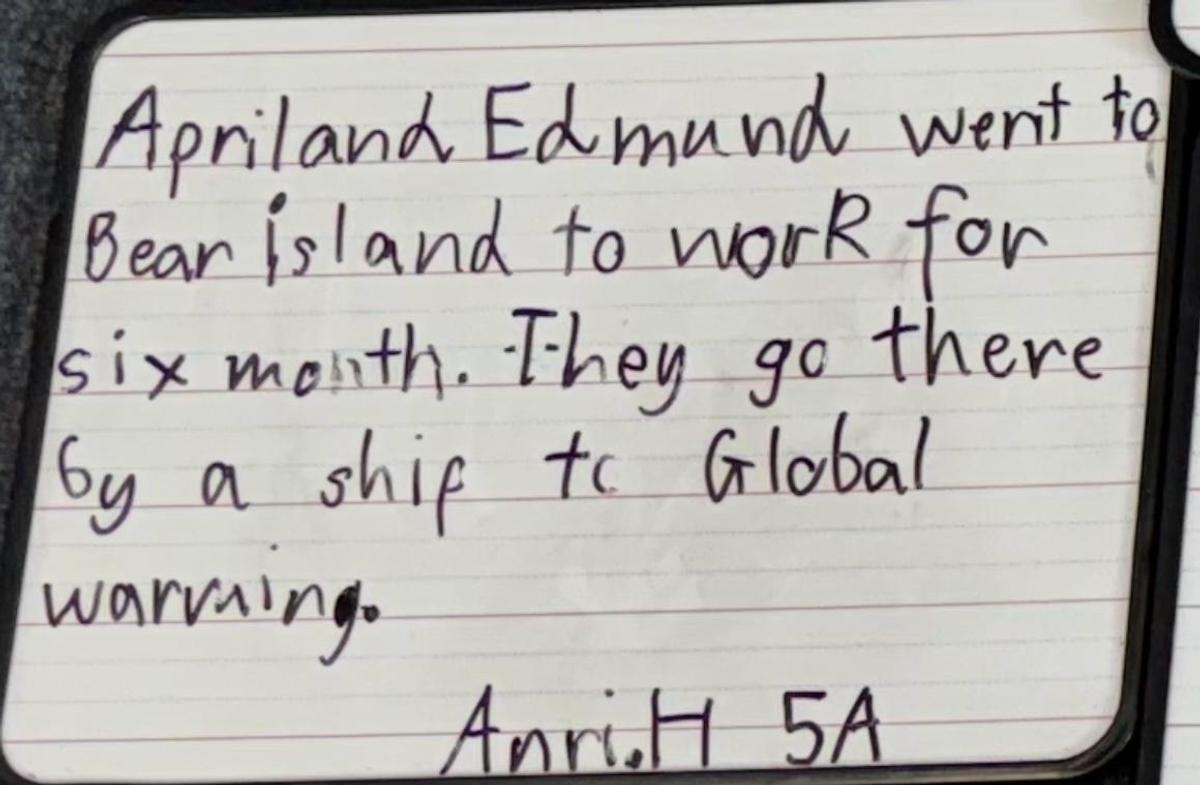 April and Edmund went to
Bear island to work for
six month. They go there
by a ship to Global
warming.
Anri.H 5A